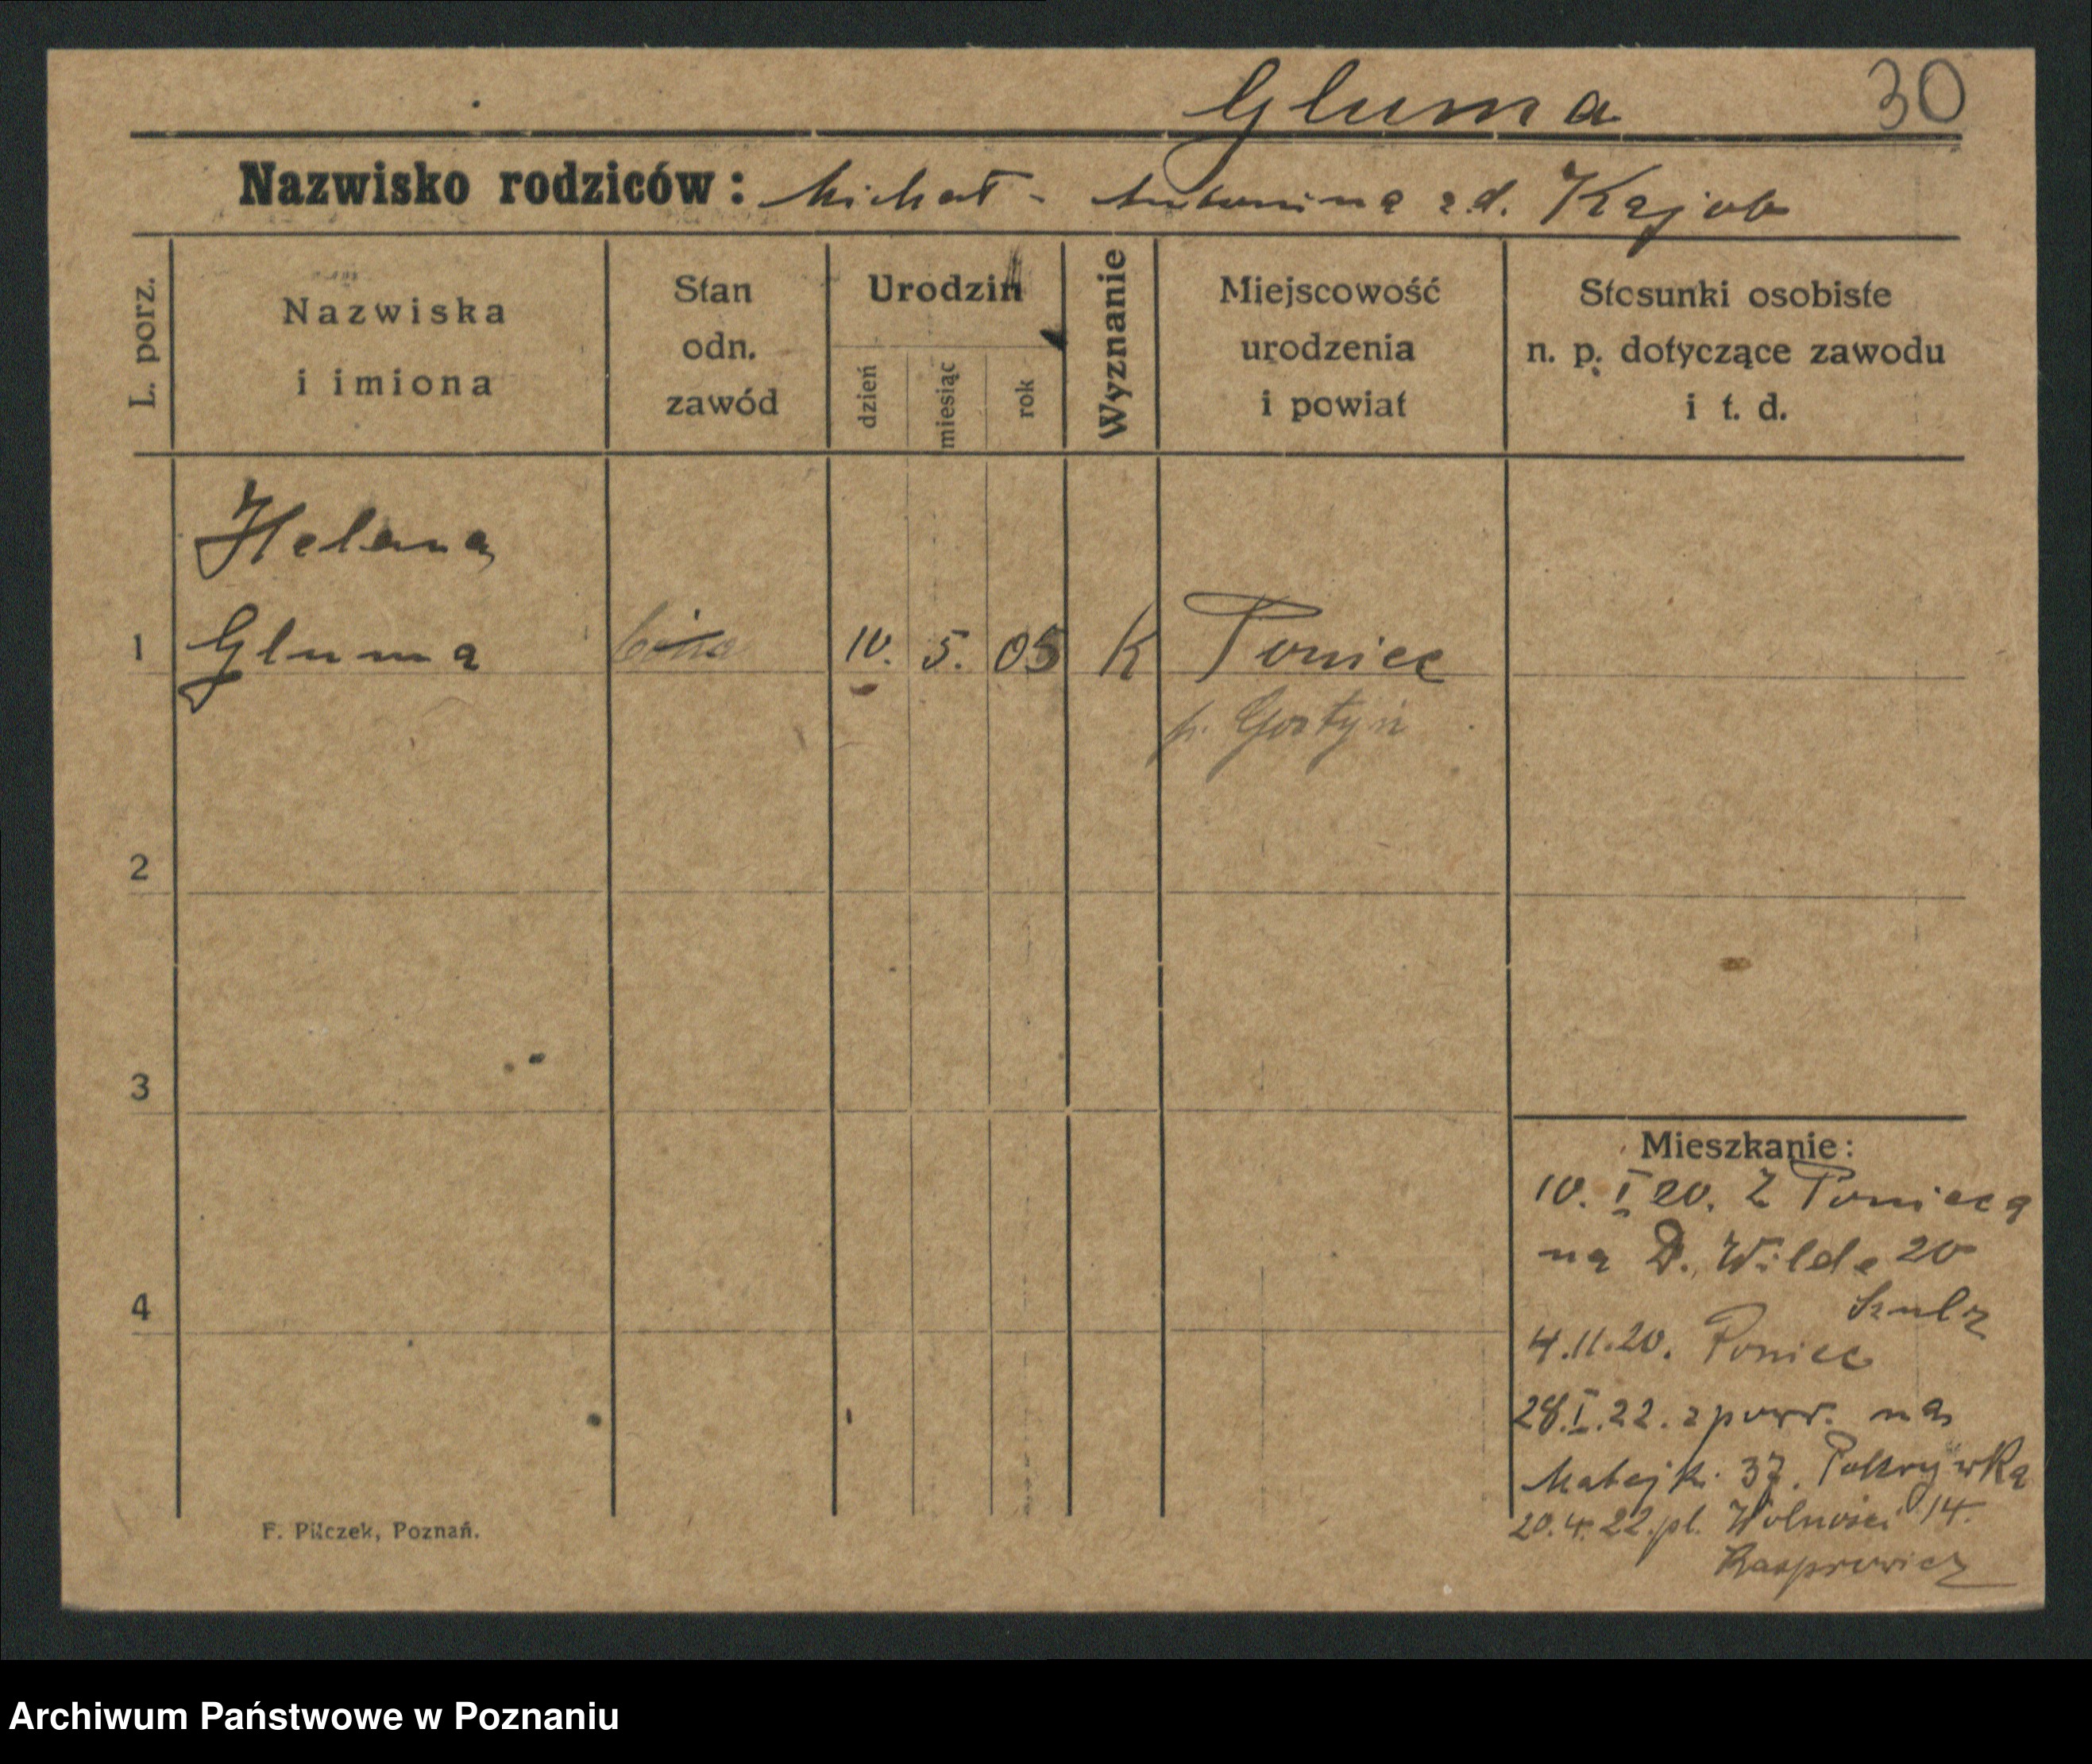 Gluma 30
Nazwisko rodziców: Michał - Antonina z d. Kajob
L. porz.
Nazwiska
i imiona
Stan
odn.
zawód
Urodzin
dzień
miesiąc
rok
Wyznanie
Miejscowość
urodzenia
i powiat
Stosunki osobiste
n. p. dotyczące zawodu
i t. d.
Helena
1 Gluma córka 10. 5. 05 K Poniec
p. Gostyń
2
3
4
Mieszkanie:
10. I 20. Z Ponieca
na D. Wilde 20
Szulz
4.11.20. Poniec
28.I.22. z powr. na
Matejk. 37. Pokrywka
20.4.22. pl. Wolności 14.
Kasprowicz
F. Pilczek, Poznań.
Archiwum Państwowe w Poznaniu